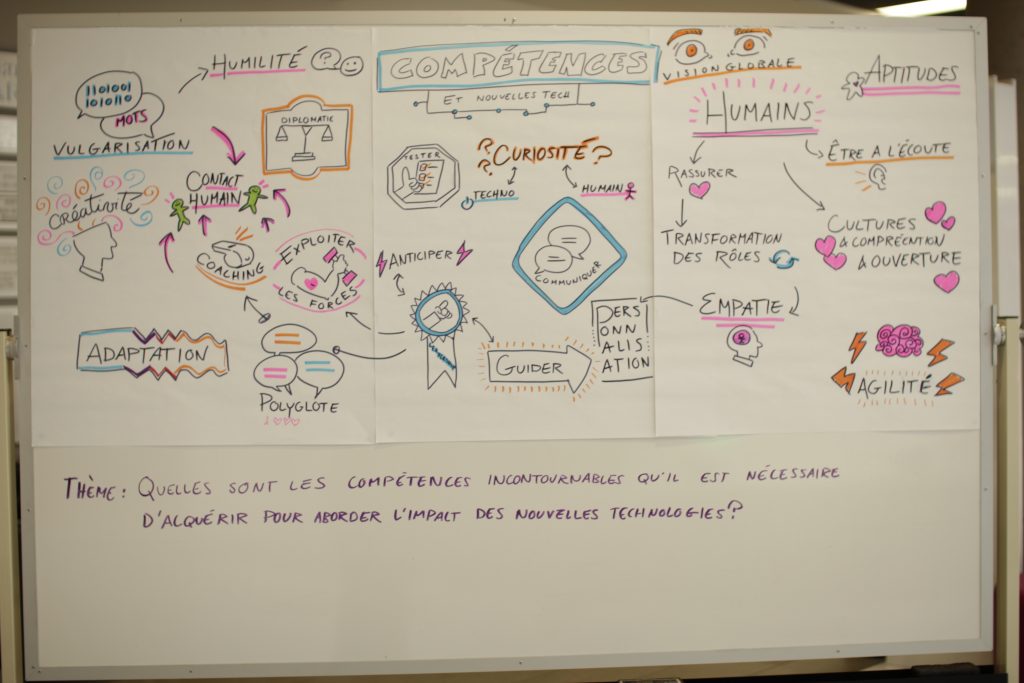 COMPÉTENCES
ET NOUVELLES TECH
HUMILITÉ ?
1101001
1010110
MOTS
VULGARISATION
DIPLOMATIE
CRÉATIVITÉ
CONTACT
HUMAIN
COACHING
EXPLOITER
LES FORCES
ADAPTATION
POLYGLOTE
TESTER
? ? CURIOSITÉ ?
TECHNO
HUMAIN
ANTICIPER
COMMUNIQUER
GUIDER
PERS
ONN
ALIS
ATION
VISION GLOBALE
HUMAINS
APTITUDES
RASSURER
ÊTRE A L'ÉCOUTE
TRANSFORMATION
DES RÔLES
CULTURES
& COMPRÉENTION
& OUVERTURE
EMPATIE
AGILITÉ
THÈME : QUELLES SONT LES COMPÉTENCES INCONTOURNABLES QU'IL EST NÉCESSAIRE
D'ALQUÉRIR POUR ABORDER L'IMPACT DES NOUVELLES TECHNOLOGIES ?